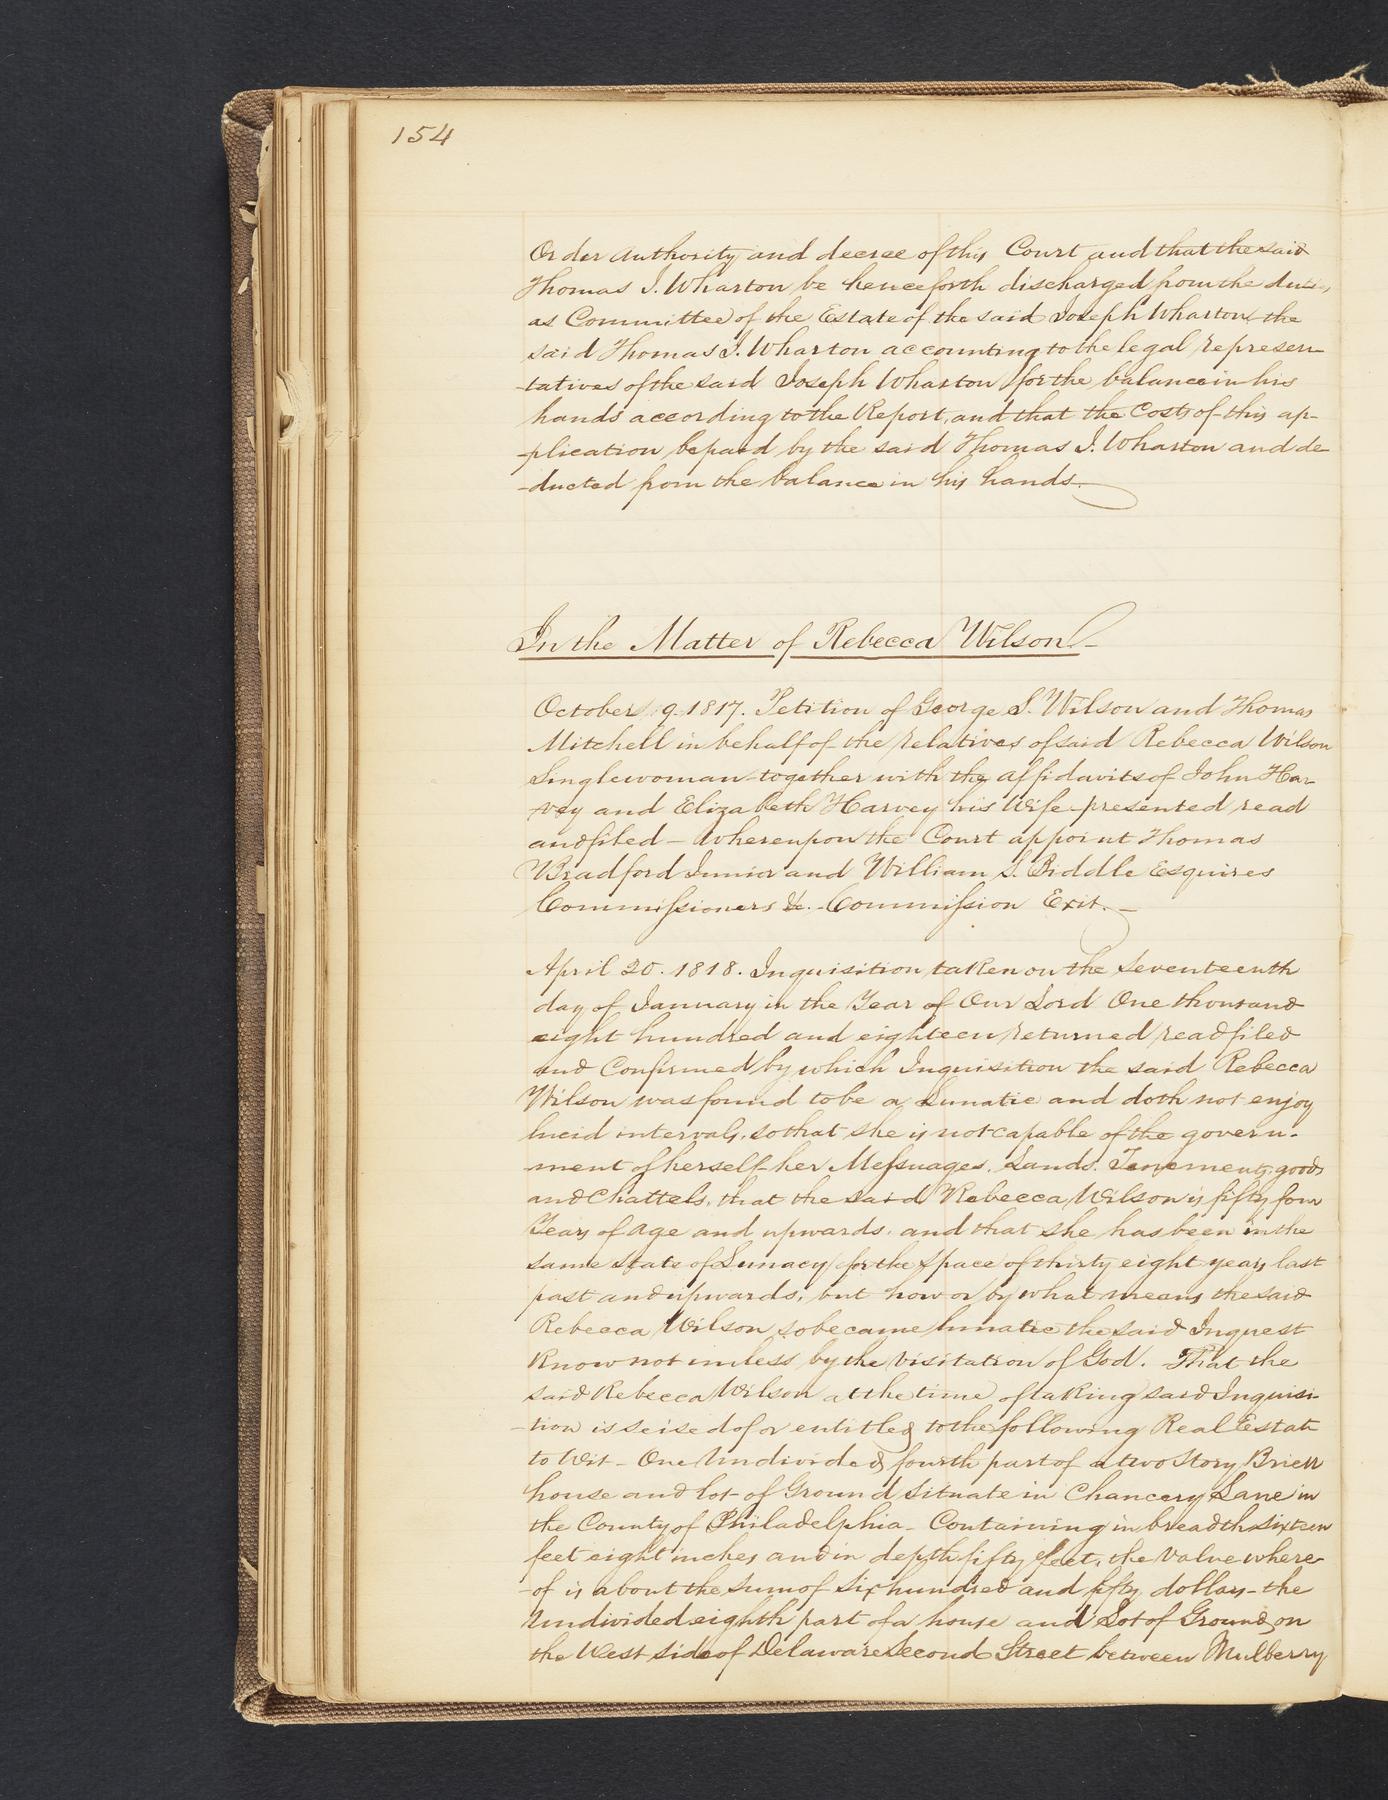 154
Order authority and decree of this Court and that the said
Thomas I. Wharton be henceforth discharged from the duties
as Committee of the Estate of the said Joseph Wharton, the
said Thomas I. Wharton accounting to the legal represen
-tatives of the said Joseph Wharton for the balance in his
hands according to the Report, and that the Costs of this ap-
-plication be paid by the said Thomas I. Wharton and de
-ducted from the balance in his hands.
In the Matter of Rebecca Wilson
October 9. 1817. Petition of George S. Wilson and Thomas
Mitchell in behalf of the relatives of said Rebecca Wilson
Singlewoman together with the affidavits of John Har-
vey and Elizabeth Harvey his Wife presented read
and filed - Whereupon the Court appoint Thomas
Bradford Junior and William S. Biddle Esquires
Commissioners &c. - Commission Exit. -
April 20. 1818. Inquisition taken on the Seventeenth
day of January in the Year of Our Lord One thousand
eight hundred and eighteen returned read filed
and Confirmed by which Inquisition the said Rebecca
Wilson was found to be a Lunatic and doth not enjoy
lucid intervals, so that she is not capable of the govern-
-ment of herself her Messuages. Lands. Tenements goods
and Chattels, that the said Rebecca Wilson is fifty four
Years of age and upwards. and that she has been in the
same state of Lunacy for the space of thirty eight years last
past and upwards, but how or by what means the said
Rebecca Wilson so became lunatic the said Inquest
Know not unless by the Visitation of God. That the
said Rebecca Wilson at the time of taking said Inquisi-
-tion is seised of or entitled to the following Real Estate
to Wit - One Undivided fourth part of a two Story Brick
house and lot of Ground situate in Chancery Lane in
the County of Philadelphia - Containing in breadth sixteen
feet eight inches and in depth fifty feet, the value where-
-of is about the sum of Six hundred and fifty dollars - the
Undivided eighth part of a house and Lot of Ground on
the West side of Delaware Second Street between Mulberry